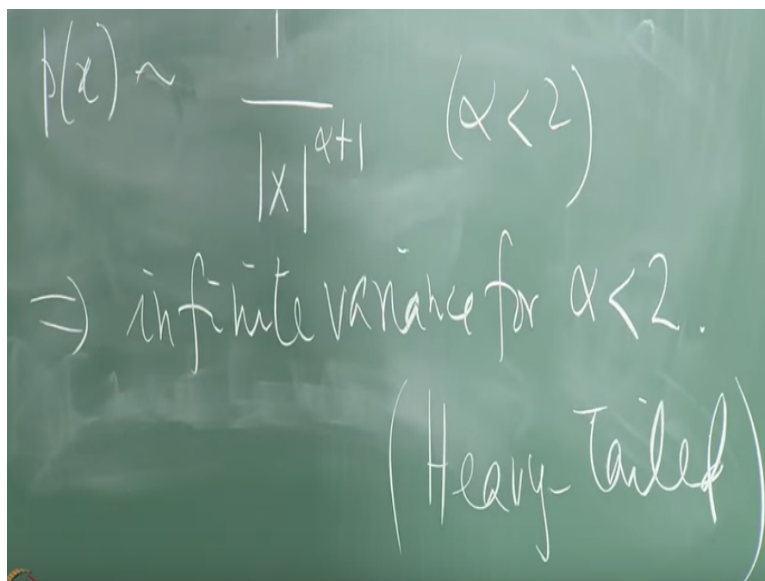 p(x) ~ 1/|x|^{α+1} (α<2)
⇒ infinite variance for α<2.
(Heavy-Tailed)